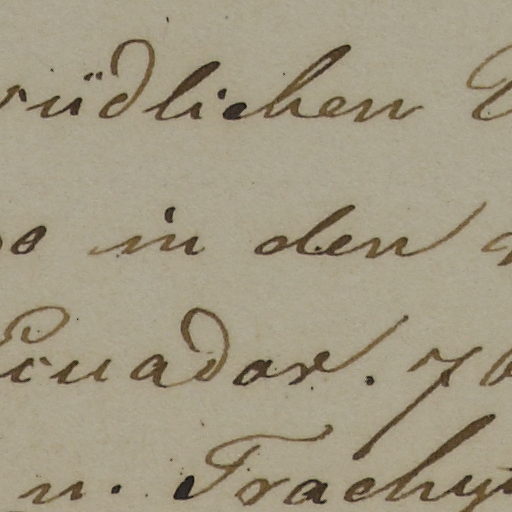 südlichen
in den
Ecuador. 76
n. Trachy